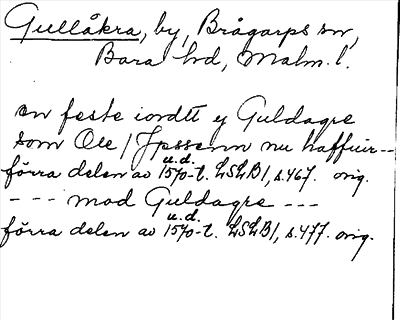 Gullåkra, by, Brågarps sn,
Bara hd, Malm. l.
en feste iordtt y Guldagre
som Ole / Jpssenn nu haffuir --
u.d.
förra delen av 1570-t. LSLB1, s.467. orig.
--- mod Guldagre ---
u.d.
förra delen av 1570-t. LSLB1, s.477. orig.